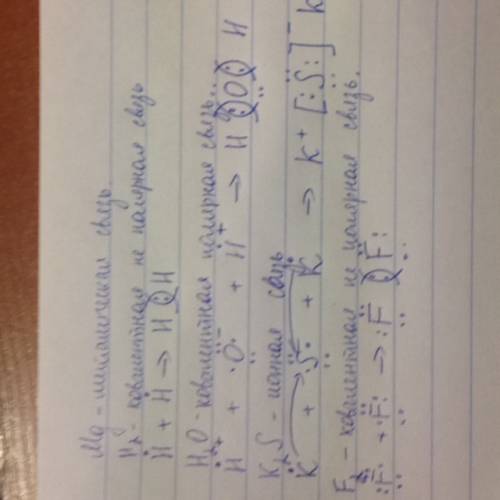 Mg - металлическая связь
H₂ - ковалентная не полярная связь
H + H → H : H
H₂O - ковалентная полярная связь
H⁺ + ·O·⁻ + H⁺ → H : O : H
K₂S - ионная связь
K + ·S· + K → K⁺ [:S:]⁻ K
F₂ - ковалентная не полярная связь.
:F· + ·F: → :F : F: